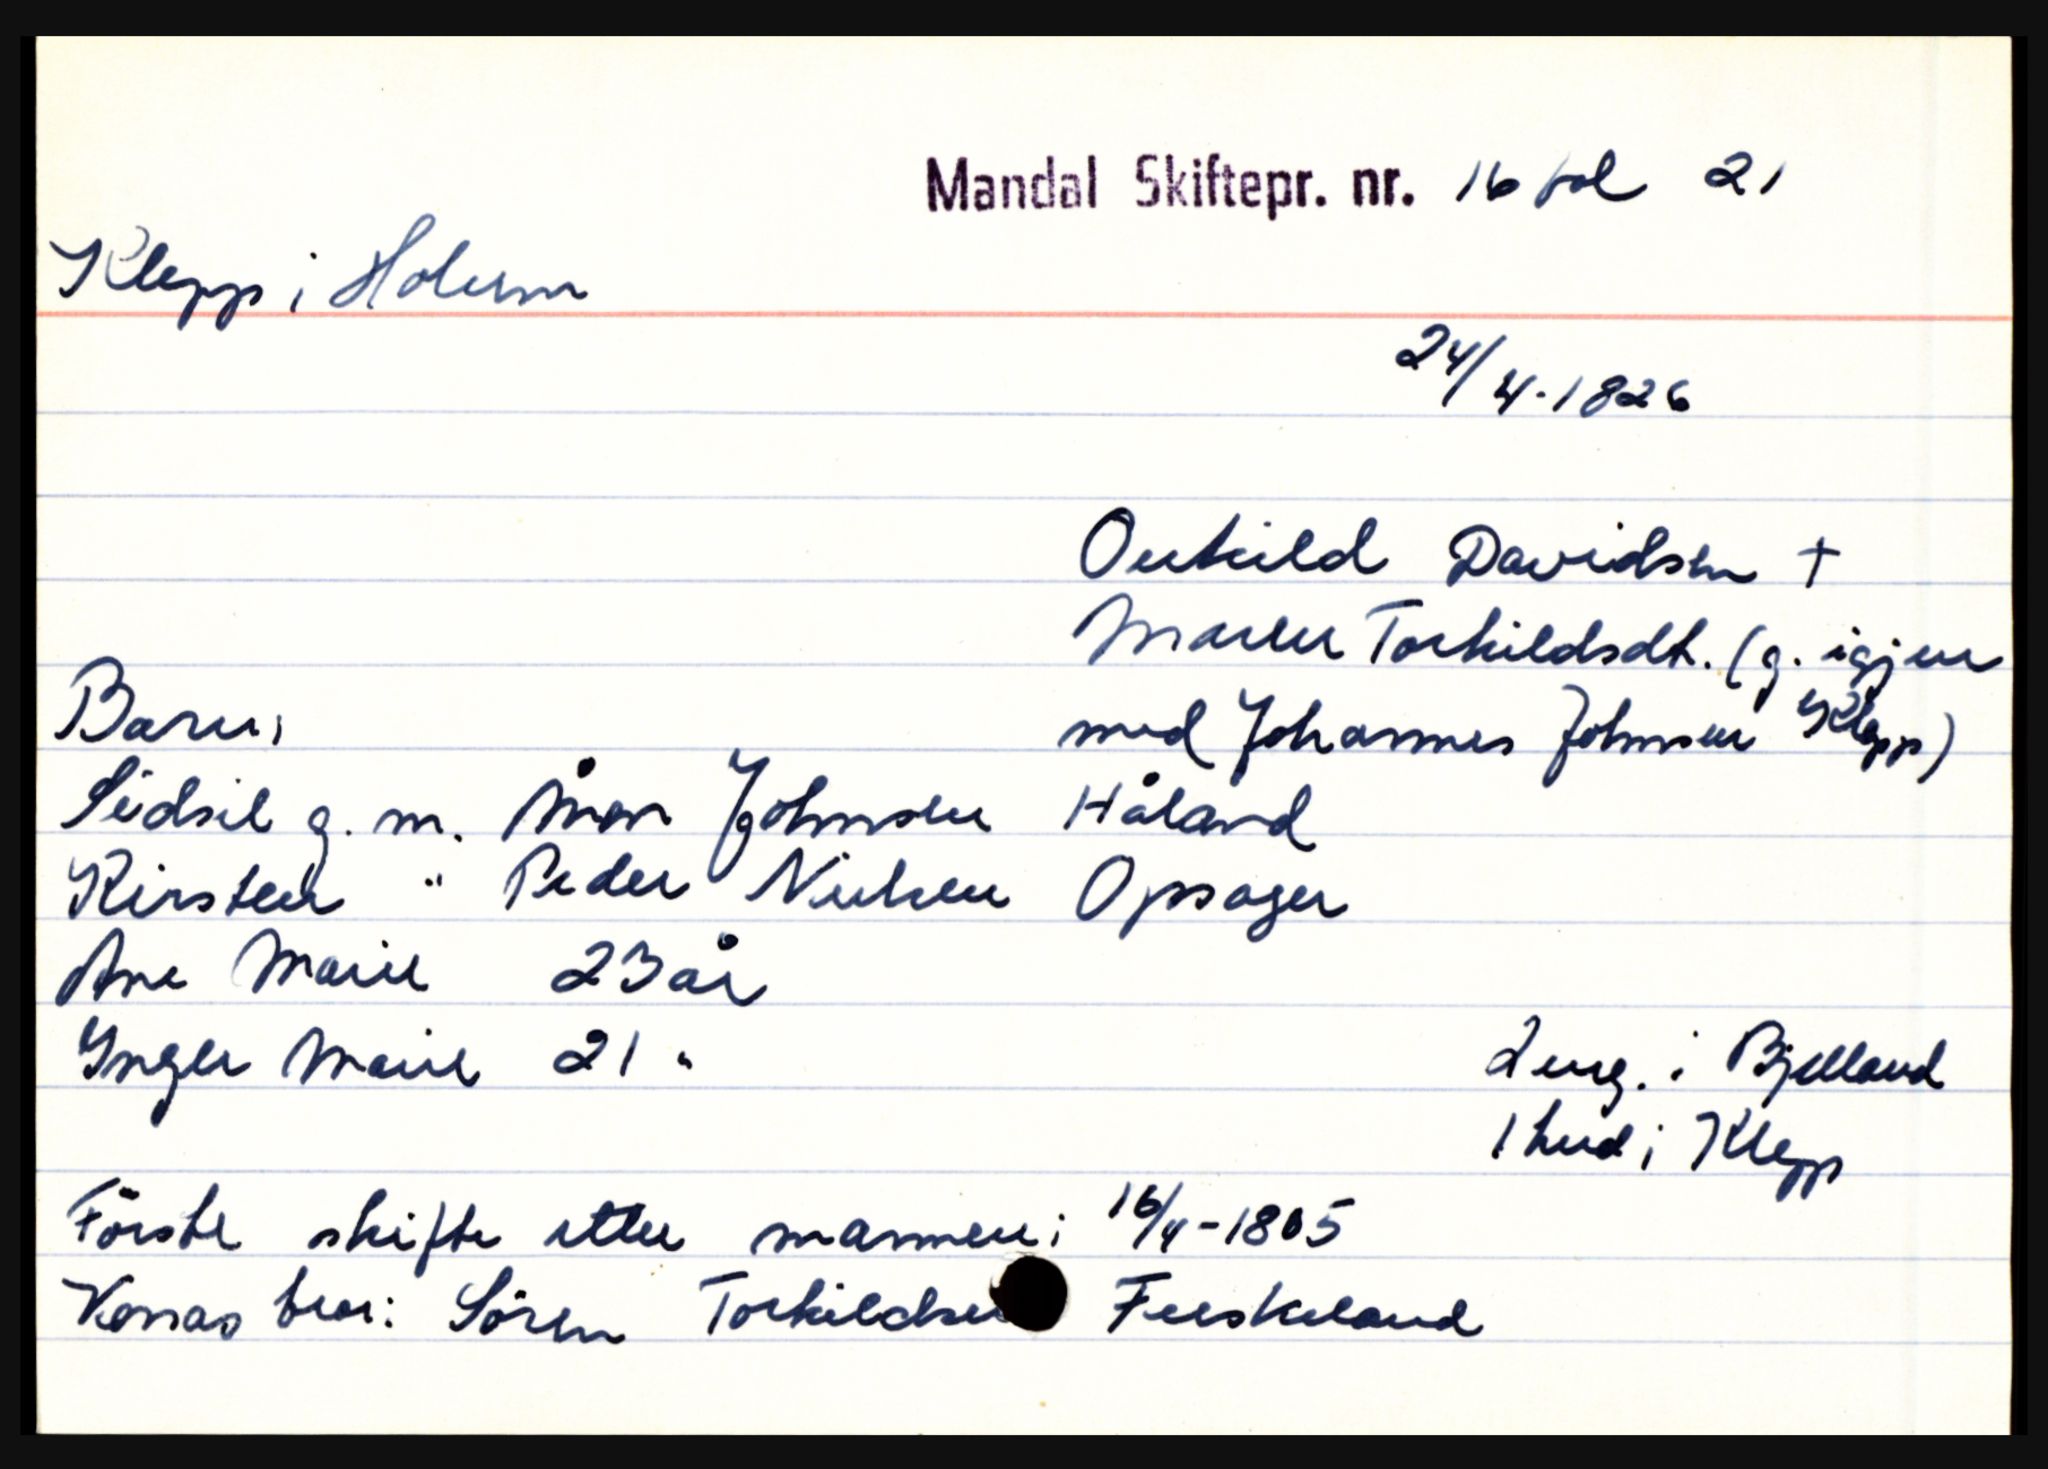 Mandal Skiftepr. nr. 16 fol 21
Klepp i Holum
24/4-1826
Outhild Davidsen +
Maren Torkildsdt. (g. igjen
med Johannes Johnsen Klepp)
Barn:
Sidsil g. m. Ånon Johnsen Håland
Kirsten " Peder Nielsen Opsager
Ane Marie 23 år
Inger Marie 21 "
2 eng. i Bjelland
1 hud i Klepp
Förste skifte etter mannen: 16/4-1805
Konas bror: Sören Torkildsen Fuskeland